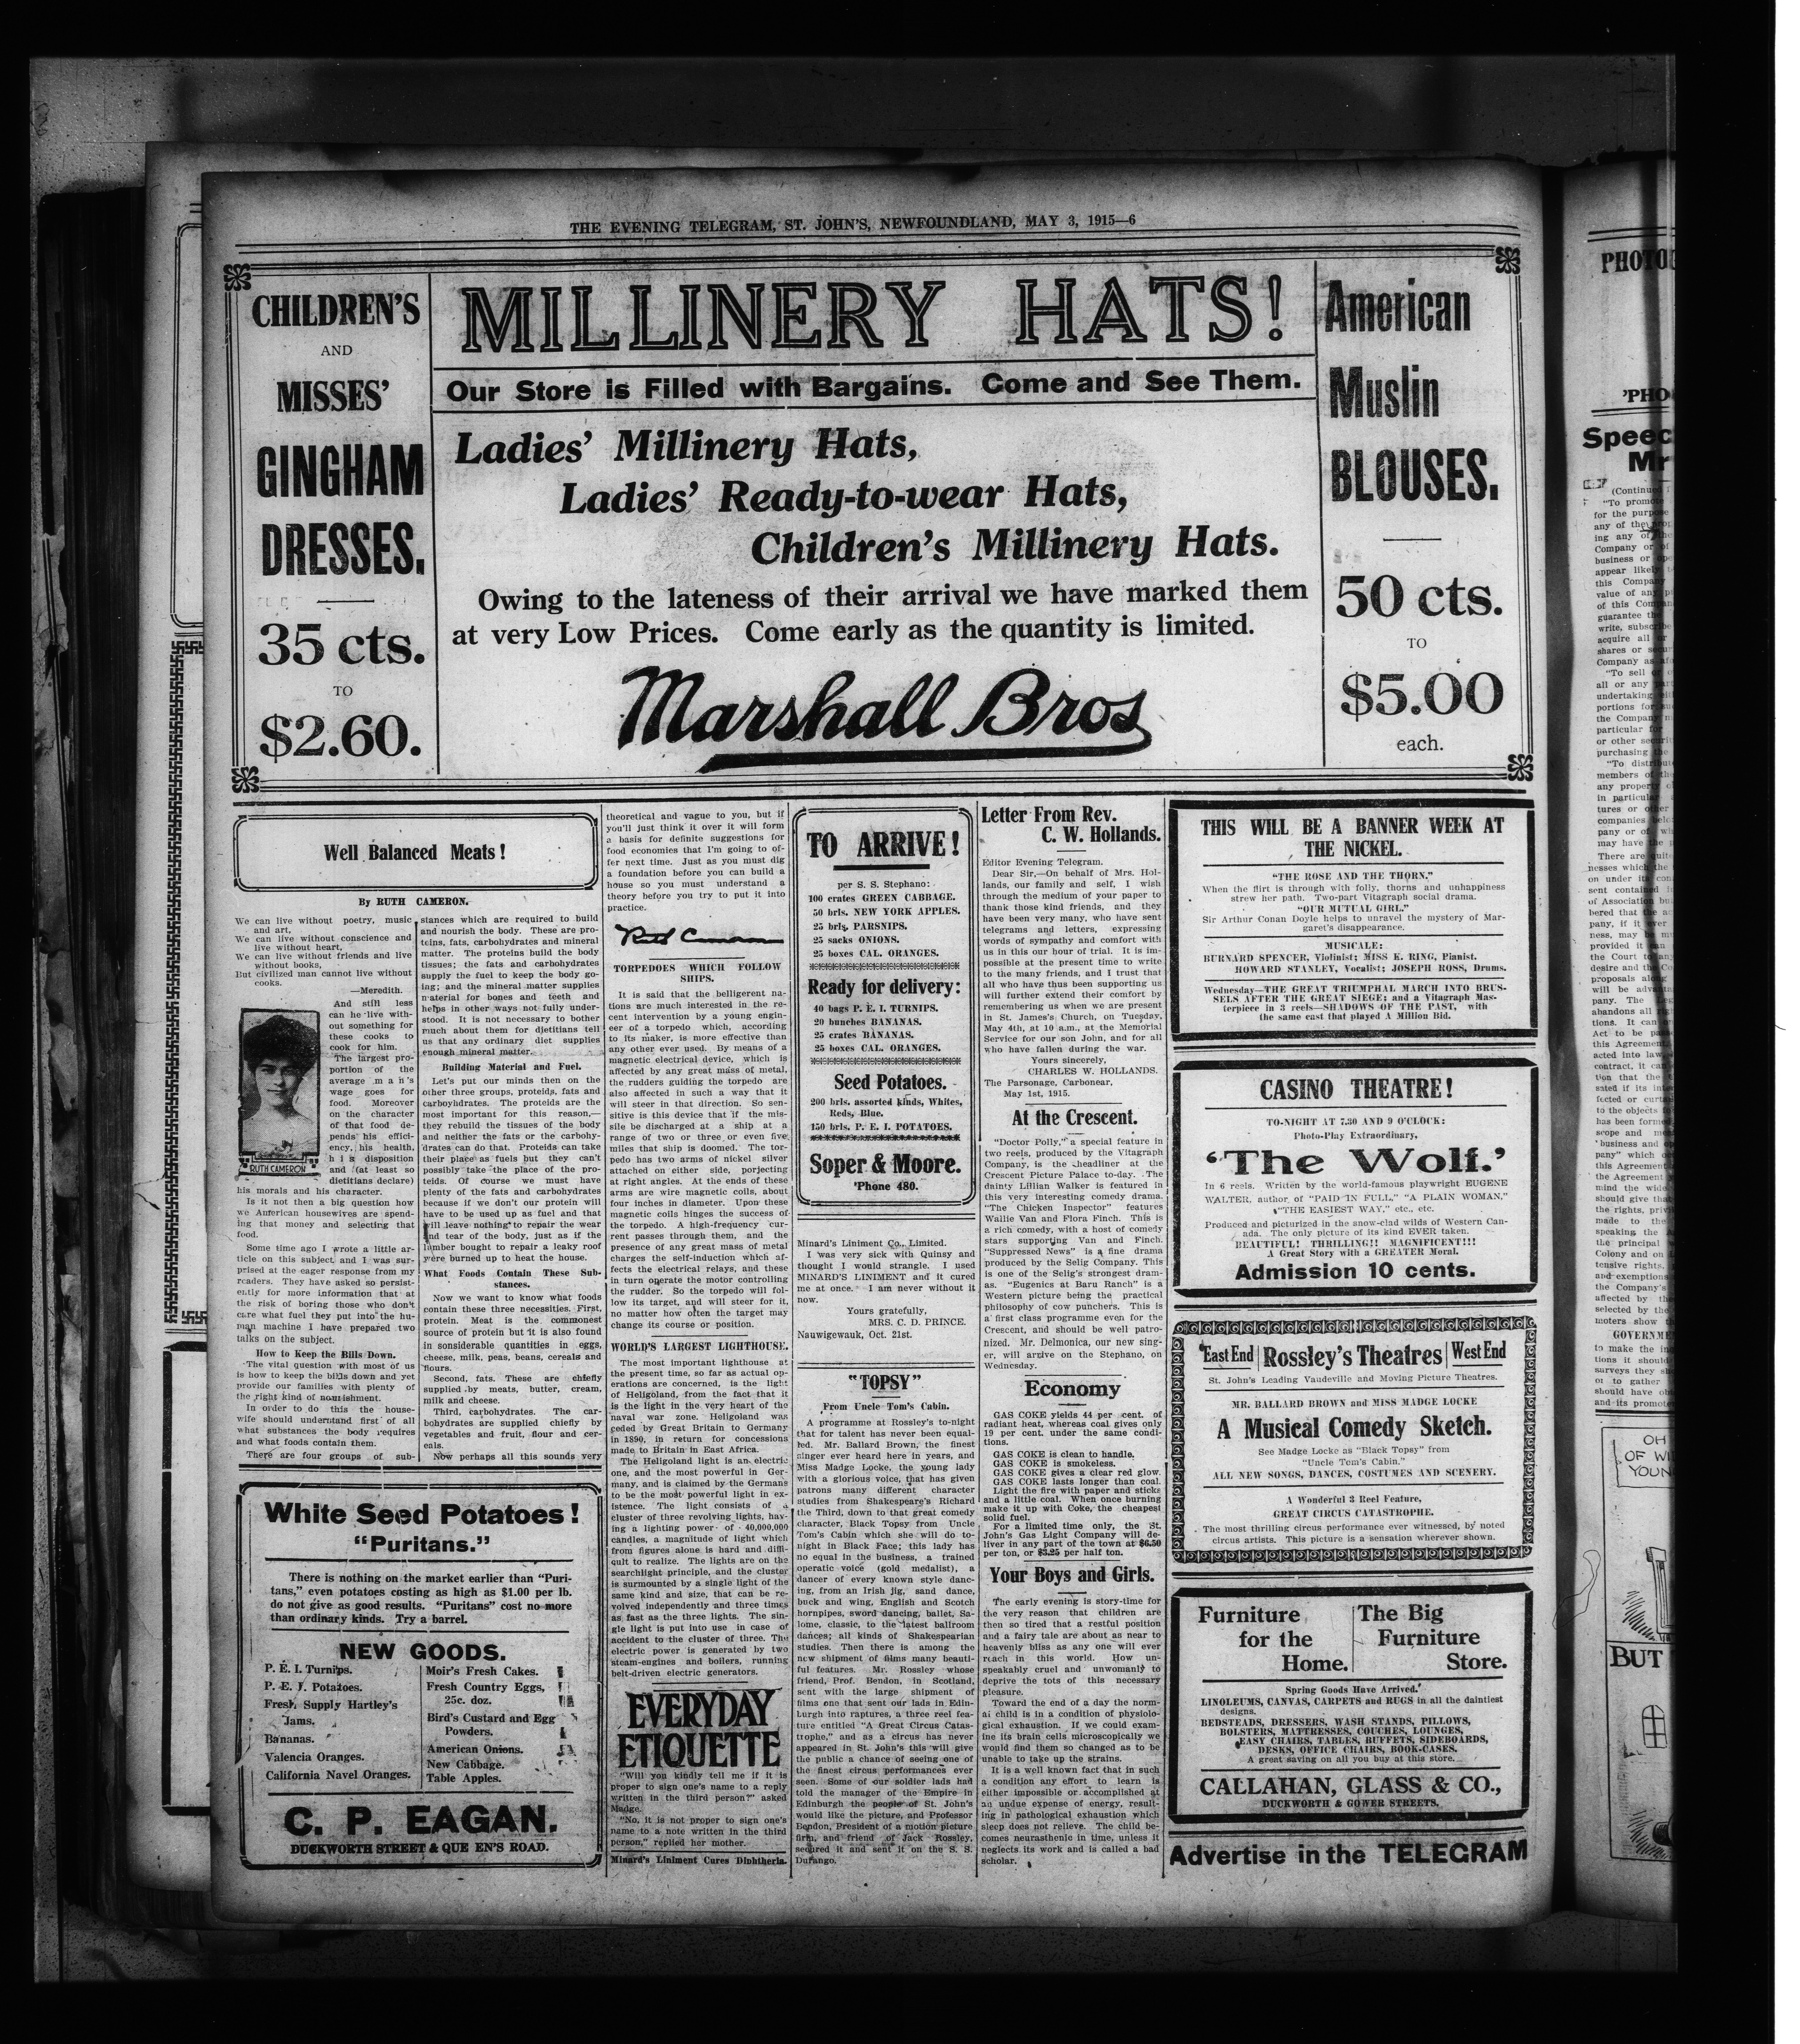 THE EVENING TELEGRAM, ST. JOHN'S, NEWFOUNDLAND, MAY 3, 1915—6
CHILDREN'S
AND
MISSES'
GINGHAM
DRESSES.
35 cts.
TO
$2.60.
MILLINERY HATS!
Our Store is Filled with Bargains. Come and See Them.
Ladies' Millinery Hats,
Ladies' Ready-to-wear Hats,
Children's Millinery Hats.
Owing to the lateness of their arrival we have marked them
at very Low Prices. Come early as the quantity is limited.
Marshall Bros
American
Muslin
BLOUSES.
50 cts.
TO
$5.00
each.
Well Balanced Meats!
By RUTH CAMERON.
We can live without poetry, music
and art,
We can live without conscience and
live without heart,
We can live without friends and live
without books,
But civilized man cannot live without
cooks.
—Meredith.
And still less
can he live with-
out something for
these cooks to
cook for him.
The largest pro-
portion of the
average man's
wage goes for
food. Moreover
on the character
of that food de-
pends his effici-
ency, his health,
his disposition
and (at least so
dietitians declare)
RUTH CAMERON
his morals and his character.
Is it not then a big question how
we American housewives are spend-
ing that money and selecting that
food.
Some time ago I wrote a little ar-
ticle on this subject and I was sur-
prised at the eager response from my
readers. They have asked so persist-
ently for more information that at
the risk of boring those who don't
care what fuel they put into the hu-
man machine I have prepared two
talks on the subject.
How to Keep the Bills Down.
The vital question with most of us
is how to keep the bills down and yet
provide our families with plenty of
the right kind of nourishment.
In order to do this the house-
wife should understand first of all
what substances the body requires
and what foods contain them.
There are four groups of sub-
stances which are required to build
and nourish the body. These are pro-
teins, fats, carbohydrates and mineral
matter. The proteins build the body
tissues; the fats and carbohydrates
supply the fuel to keep the body go-
ing; and the mineral matter supplies
material for bones and teeth and
helps in other ways not fully under-
stood. It is not necessary to bother
much about them for dietitians tell
us that any ordinary diet supplies
enough mineral matter.
Building Material and Fuel.
Let's put our minds then on the
other three groups, proteids, fats and
carbohydrates. The proteids are the
most important for this reason,—
they rebuild the tissues of the body
and neither the fats or the carbohy-
drates can do that. Proteids can take
their place as fuels but they can't
possibly take the place of the pro-
teids. Of course we must have
plenty of the fats and carbohydrates
because if we don't our protein will
have to be used up as fuel and that
will leave nothing to repair the wear
and tear of the body, just as if the
lumber bought to repair a leaky roof
were burned up to heat the house.
What Foods Contain These Sub-
stances.
Now we want to know what foods
contain these three necessities. First,
protein. Meat is the commonest
source of protein but it is also found
in sonsiderable quantities in eggs,
cheese, milk, peas, beans, cereals and
flours.
Second, fats. These are chiefly
supplied by meats, butter, cream,
milk and cheese.
Third, carbohydrates. The car-
bohydrates are supplied chiefly by
vegetables and fruit, flour and cer-
eals.
Now perhaps all this sounds very
White Seed Potatoes!
"Puritans."
There is nothing on the market earlier than "Puri-
tans," even potatoes costing as high as $1.00 per lb.
do not give as good results. "Puritans" cost no more
than ordinary kinds. Try a barrel.
NEW GOODS.
P. E. I. Turnips.
P. E. I. Potatoes.
Fresh Supply Hartley's
Jams.
Bananas.
Valencia Oranges.
California Navel Oranges.
Moir's Fresh Cakes.
Fresh Country Eggs,
25c. doz.
Bird's Custard and Egg
Powders.
American Onions.
New Cabbage.
Table Apples.
C. P. EAGAN.
DUCKWORTH STREET & QUEEN'S ROAD.
theoretical and vague to you, but if
you'll just think it over it will form
a basis for definite suggestions for
food economies that I'm going to of-
fer next time. Just as you must dig
a foundation before you can build a
house so you must understand a
theory before you try to put it into
practice.
Ruth Cameron
TORPEDOES WHICH FOLLOW
SHIPS.
It is said that the belligerent na-
tions are much interested in the re-
cent intervention by a young engin-
eer of a torpedo which, according
to its maker, is more effective than
any other ever used. By means of a
magnetic electrical device, which is
affected by any great mass of metal,
the rudders guiding the torpedo are
also affected in such a way that it
will steer in that direction. So sen-
sitive is this device that if the mis-
sile be discharged at a ship at a
range of two or three or even five
miles that ship is doomed. The tor-
pedo has two arms of nickel silver
attached on either side, porjecting
at right angles. At the ends of these
arms are wire magnetic coils, about
four inches in diameter. Upon these
magnetic coils hinges the success of
the torpedo. A high-frequency cur-
rent passes through them, and the
presence of any great mass of metal
charges the self-induction which af-
fects the electrical relays, and these
in turn operate the motor controlling
the rudder. So the torpedo will fol-
low its target, and will steer for it,
no matter how often the target may
change its course or position.
WORLD'S LARGEST LIGHTHOUSE.
The most important lighthouse at
the present time, so far as actual op-
erations are concerned, is the light
of Heligoland, from the fact that it
is the light in the very heart of the
naval war zone. Heligoland was
ceded by Great Britain to Germany
in 1890, in return for concessions
made to Britain in East Africa.
The Heligoland light is an electric
one, and the most powerful in Ger-
many, and is claimed by the Germans
to be the most powerful light in ex-
istence. The light consists of a
cluster of three revolving lights, hav-
ing a lighting power of 40,000,000
candles, a magnitude of light which
from figures alone is hard and diffi-
qult to realize. The lights are on the
searchlight principle, and the cluster
is surmounted by a single light of the
same kind and size, that can be re-
volved independently and three times
as fast as the three lights. The sin-
gle light is put into use in case of
accident to the cluster of three. The
electric power is generated by two
steam-engines and boilers, running
belt-driven electric generators.
EVERYDAY
ETIQUETTE
"Will you kindly tell me if it is
proper to sign one's name to a reply
written in the third person?" asked
Madge.
"No, it is not proper to sign one's
name to a note written in the third
person," replied her mother.
Minard's Liniment Cures Diphtheria.
TO ARRIVE!
per S. S. Stephano:
100 crates GREEN CABBAGE.
50 brls. NEW YORK APPLES.
25 brls. PARSNIPS.
25 sacks ONIONS.
25 boxes CAL. ORANGES.
Ready for delivery:
40 bags P. E. I. TURNIPS.
20 bunches BANANAS.
25 crates BANANAS.
25 boxes CAL. ORANGES.
Seed Potatoes.
200 brls. assorted kinds, Whites,
Reds, Blue.
150 brls. P. E. I. POTATOES.
Soper & Moore.
'Phone 480.
Minard's Liniment Co., Limited.
I was very sick with Quinsy and
thought I would strangle. I used
MINARD'S LINIMENT and it cured
me at once. I am never without it
now.
Yours gratefully,
MRS. C. D. PRINCE.
Nauwigewauk, Oct. 21st.
"TOPSY"
From Uncle Tom's Cabin.
A programme at Rossley's to-night
that for talent has never been equal-
led. Mr. Ballard Brown, the finest
singer ever heard here in years, and
Miss Madge Locke, the young lady
with a glorious voice, that has given
patrons many different character
studies from Shakespeare's Richard
the Third, down to that great comedy
character, Black Topsy from Uncle
Tom's Cabin which she will do to-
night in Black Face; this lady has
no equal in the business, a trained
operatic voice (gold medalist), a
dancer of every known style danc-
ing, from an Irish jig, sand dance,
buck and wing, English and Scotch
hornpipes, sword dancing, ballet, Sa-
lome, classic, to the latest ballroom
dances; all kinds of Shakespearian
studies. Then there is among the
new shipment of films many beauti-
ful features. Mr. Rossley whose
friend, Prof. Bendon, in Scotland,
sent with the large shipment of
films one that sent our lads in Edin-
burgh into raptures, a three reel fea-
ture entitled "A Great Circus Catas-
trophe," and as a circus has never
appeared in St. John's this will give
the public a chance of seeing one of
the finest circus performances ever
seen. Some of our soldier lads had
told the manager of the Empire in
Edinburgh the people of St. John's
would like the picture, and Professor
Bendon, President of a motion picture
firm, and friend of Jack Rossley,
secured it and sent it on the S. S.
Durango.
Letter From Rev.
C. W. Hollands.
Editor Evening Telegram.
Dear Sir,—On behalf of Mrs. Hol-
lands, our family and self, I wish
through the medium of your paper to
thank those kind friends, and they
have been very many, who have sent
telegrams and letters, expressing
words of sympathy and comfort with
us in this our hour of trial. It is im-
possible at the present time to write
to the many friends, and I trust that
all who have thus been supporting us
will further extend their comfort by
remembering us when we are present
in St. James's Church, on Tuesday,
May 4th, at 10 a.m., at the Memorial
Service for our son John, and for all
who have fallen during the war.
Yours sincerely,
CHARLES W. HOLLANDS.
The Parsonage, Carbonear,
May 1st, 1915.
At the Crescent.
"Doctor Polly," a special feature in
two reels, produced by the Vitagraph
Company, is the headliner at the
Crescent Picture Palace to-day. The
dainty Lillian Walker is featured in
this very interesting comedy drama.
"The Chicken Inspector" features
Wallie Van and Flora Finch. This is
a rich comedy, with a host of comedy
stars supporting Van and Finch.
"Suppressed News" is a fine drama
produced by the Selig Company. This
is one of the Selig's strongest dram-
as. "Eugenics at Baru Ranch" is a
Western picture being the practical
philosophy of cow punchers. This is
a first class programme even for the
Crescent, and should be well patro-
nized. Mr. Delmonica, our new sing-
er, will arrive on the Stephano, on
Wednesday.
Economy
GAS COKE yields 44 per cent. of
radiant heat, whereas coal gives only
19 per cent. under the same condi-
tions.
GAS COKE is clean to handle.
GAS COKE is smokeless.
GAS COKE gives a clear red glow.
GAS COKE lasts longer than coal.
Light the fire with paper and sticks
and a little coal. When once burning
make it up with Coke, the cheapest
solid fuel.
For a limited time only, the St.
John's Gas Light Company will de-
liver in any part of the town at $6.50
per ton, or $3.25 per half ton.
Your Boys and Girls.
The early evening is story-time for
the very reason that children are
then so tired that a restful position
and a fairy tale are about as near to
heavenly bliss as any one will ever
reach in this world. How un-
speakably cruel and unwomanly to
deprive the tots of this necessary
pleasure.
Toward the end of a day the norm-
al child is in a condition of physiolo-
gical exhaustion. If we could exam-
ine its brain cells microscopically we
would find them so changed as to be
unable to take up the strains.
It is a well known fact that in such
a condition any effort to learn is
either impossible or accomplished at
an undue expense of energy, result-
ing in pathological exhaustion which
sleep does not relieve. The child be-
comes neurasthenic in time, unless it
neglects its work and is called a bad
scholar.
THIS WILL BE A BANNER WEEK AT
THE NICKEL.
"THE ROSE AND THE THORN."
When the flirt is through with folly, thorns and unhappiness
strew her path. Two-part Vitagraph social drama.
"OUR MUTUAL GIRL."
Sir Arthur Conan Doyle helps to unravel the mystery of Mar-
garet's disappearance.
MUSICALE:
BURNARD SPENCER, Violinist; MISS K. RING, Pianist.
HOWARD STANLEY, Vocalist; JOSEPH ROSS, Drums.
Wednesday—THE GREAT TRIUMPHAL MARCH INTO BRUS-
SELS AFTER THE GREAT SIEGE; and a Vitagraph Mas-
terpiece in 3 reels—SHADOWS OF THE PAST, with
the same cast that played A Million Bid.
CASINO THEATRE!
TO-NIGHT AT 7.30 AND 9 O'CLOCK:
Photo-Play Extraordinary,
'The Wolf.'
In 6 reels. Written by the world-famous playwright EUGENE
WALTER, author of "PAID IN FULL," "A PLAIN WOMAN,"
"THE EASIEST WAY," etc., etc.
Produced and picturized in the snow-clad wilds of Western Can-
ada. The only picture of its kind EVER taken.
BEAUTIFUL! THRILLING!! MAGNIFICENT!!!
A Great Story with a GREATER Moral.
Admission 10 cents.
East End Rossley's Theatres West End
St. John's Leading Vaudeville and Moving Picture Theatres.
MR. BALLARD BROWN and MISS MADGE LOCKE
A Musical Comedy Sketch.
See Madge Locke as "Black Topsy" from
"Uncle Tom's Cabin."
ALL NEW SONGS, DANCES, COSTUMES AND SCENERY.
A Wonderful 3 Reel Feature,
GREAT CIRCUS CATASTROPHE.
The most thrilling circus performance ever witnessed, by noted
circus artists. This picture is a sensation wherever shown.
Furniture
for the
Home.
The Big
Furniture
Store.
Spring Goods Have Arrived.
LINOLEUMS, CANVAS, CARPETS and RUGS in all the daintiest
designs.
BEDSTEADS, DRESSERS, WASH STANDS, PILLOWS,
BOLSTERS, MATTRESSES, COUCHES, LOUNGES,
EASY CHAIRS, TABLES, BUFFETS, SIDEBOARDS,
DESKS, OFFICE CHAIRS, BOOK-CASES.
A great saving on all you buy at this store.
CALLAHAN, GLASS & CO.,
DUCKWORTH & GOWER STREETS.
Advertise in the TELEGRAM